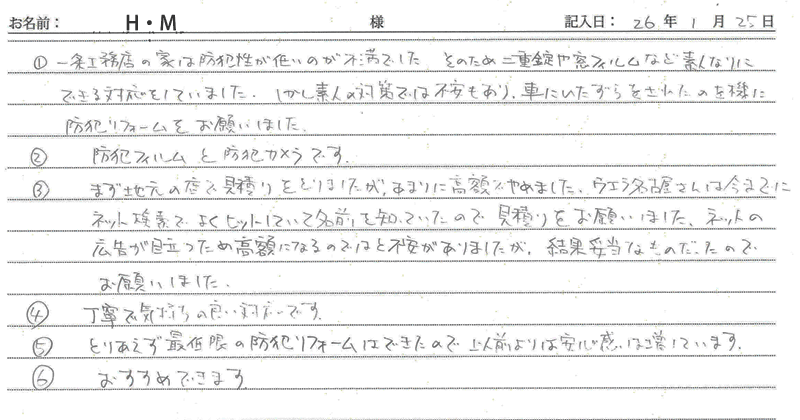 お名前： H・M 様 記入日： 26 年 1 月 25 日
① 一条工務店の家は防犯性が低いのが不満でした そのため二重錠や窓フィルムなど素人なりに
できる対応をしていました. しかし素人の対策では不安もあり, 車にいたずらをされたのを機に
防犯リフォームをお願いしました.
② 防犯フィルムと防犯カメラです.
③ まず地元の店で見積りをとりましたが, あまりに高額でやめました. ウエラ名古屋さんは今までに
ネット検索でよくヒットしていて名前を知っていたので見積りをお願いしました. ネットの
広告が目立つため高額になるのではと不安がありましたが, 結果妥当なものだったので
お願いしました.
④ 丁寧で気持ちの良い対応です.
⑤ とりあえず最低限の防犯リフォームはできたので 以前よりは安心感は増しています.
⑥ おすすめできます